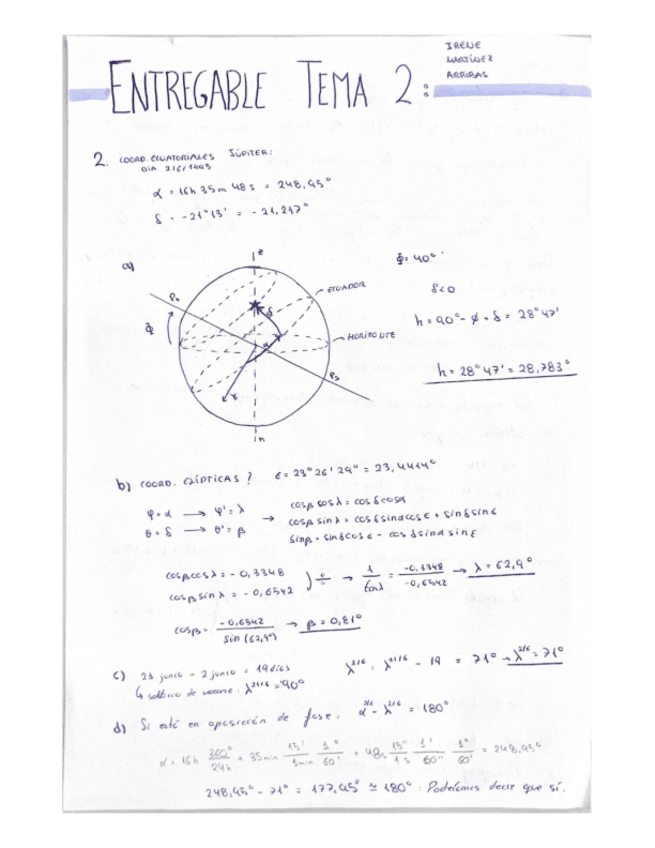 IRENE
MARTÍNEZ
ARRIBAS
ENTREGABLE TEMA 2:
2. COORD. ECUATORIALES JÚPITER:
DIA 2/6/1995
α = 16h 35m 48s = 248,95°
δ = -21°13' = -21,217°
a)
z
P_N
ECUADOR
δ
HORIZONTE
α
Φ
P_S
γ
n
Φ = 40°'
δ<0
h = 90° - φ + δ = 28°47'
h = 28°47' = 28,783°
b) COORD. ECLÍPTICAS? ε = 23°26'29" = 23,4414°
φ = α → φ' = λ
θ = δ → θ' = β
→ cosβ cosλ = cosδ cosα
cosβ sinλ = cosδ sinα cosε + sinδ sinε
sinβ = sinδ cosε - cosδ sinα sinε
cosβ cosλ = -0,3348
cosβ sinλ = -0,6542
) ÷ → 1/tanλ = -0,3348/-0,6542 → λ = 62,9°
cosβ = -0,6542/sin(62,9°) → β = 0,81°
c) 21 junio - 2 junio = 19 días
↳ solsticio de verano: λ^21/6 = 90°
λ^2/6 = λ^21/6 - 19 = 71° → λ^2/6 = 71°
d) Si está en oposición de fase: α^2/6 - λ^2/6 = 180°
α = 16h 360°/24h + 35min 15'/1min 1°/60' + 48s 15"/1s 1'/60" 1°/60' = 248,95°
248,95° - 71° = 177,95° ≅ 180° : Podríamos decir que sí.